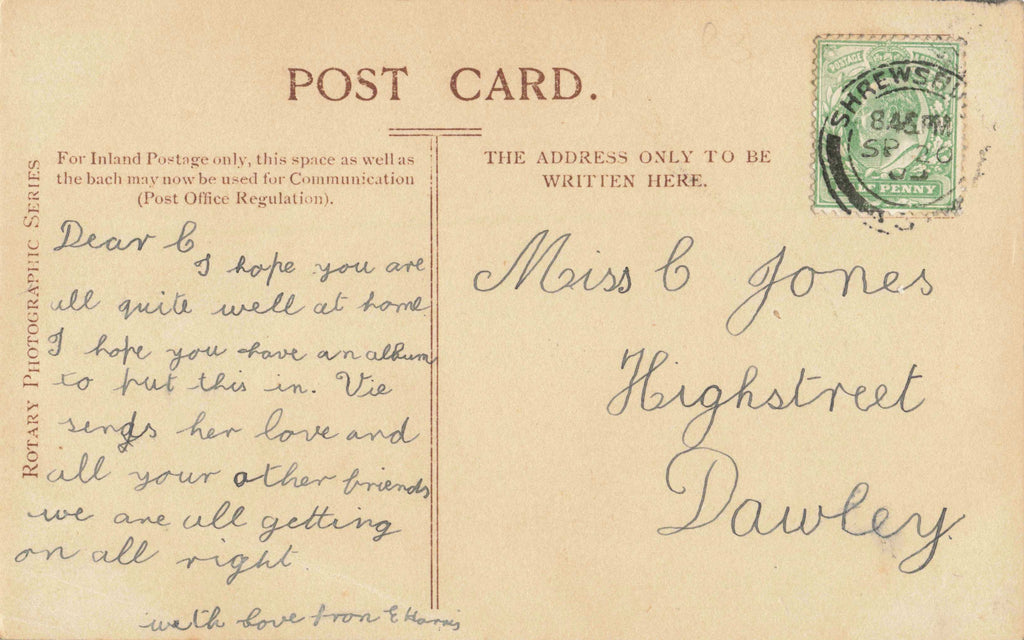 POST CARD.
ROTARY PHOTOGRAPHIC SERIES
For Inland Postage only, this space as well as
the bach may now be used for Communication
(Post Office Regulation).
THE ADDRESS ONLY TO BE
WRITTEN HERE.
POSTAGE
PENNY
SHREWSBU
SP 26
Dear C
I hope you are
all quite well at home
I hope you have an album
to put this in. Vie
sends her love and
all your other friends
we are all getting
on all right
with love from E Harris
Miss C Jones
Highstreet
Dawley